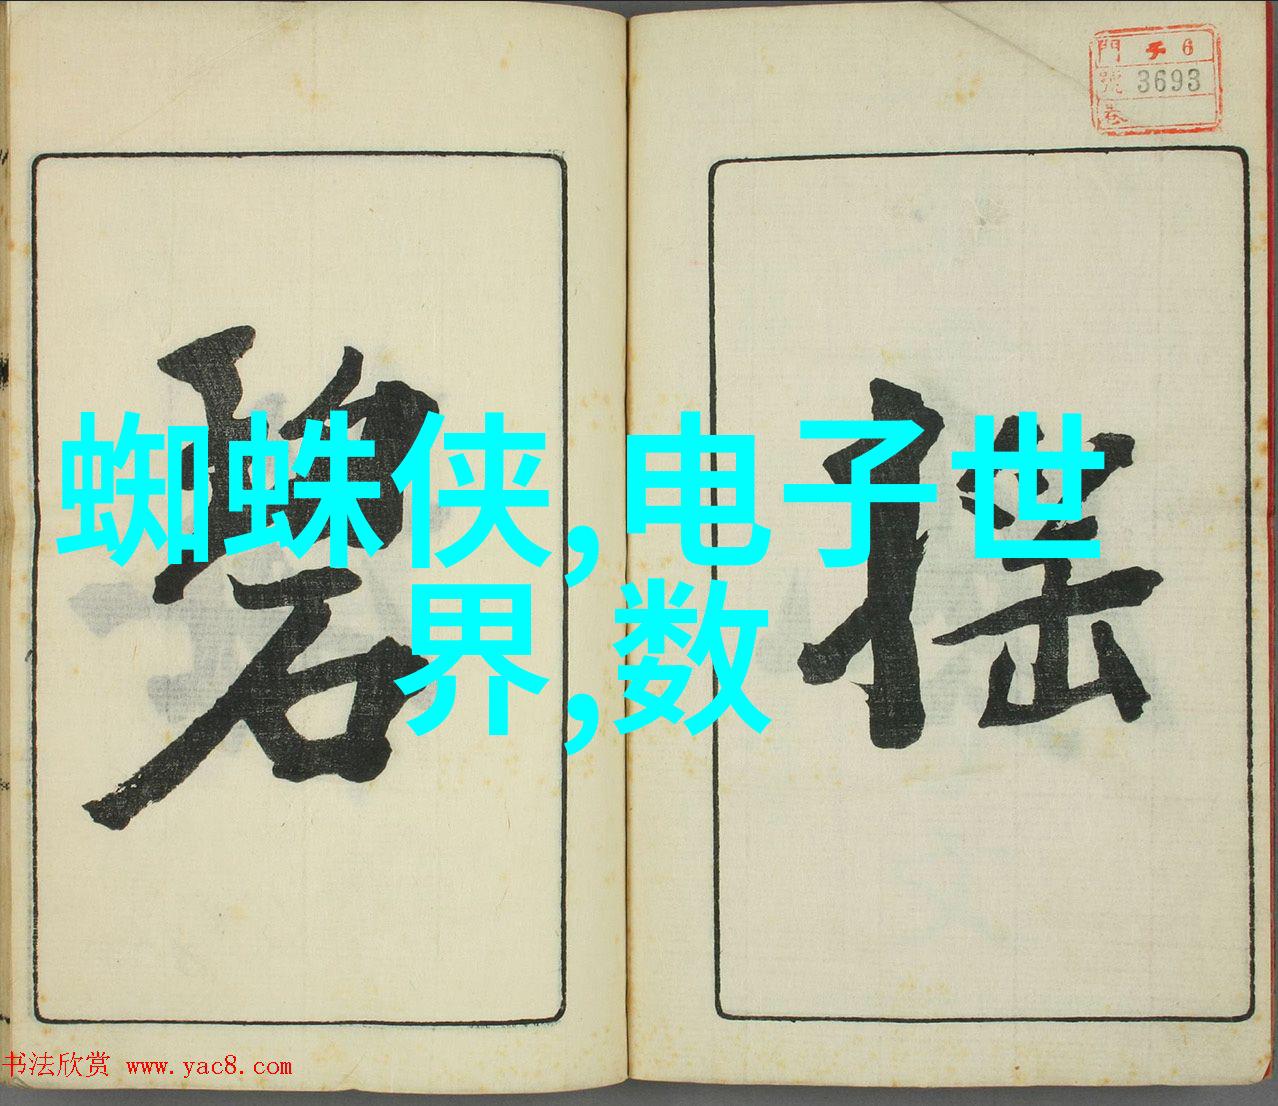 門 チ 6
號 3693
卷
搖
碧
蜘蛛侠,电子世
界,数
书法欣赏 www.yac8.com